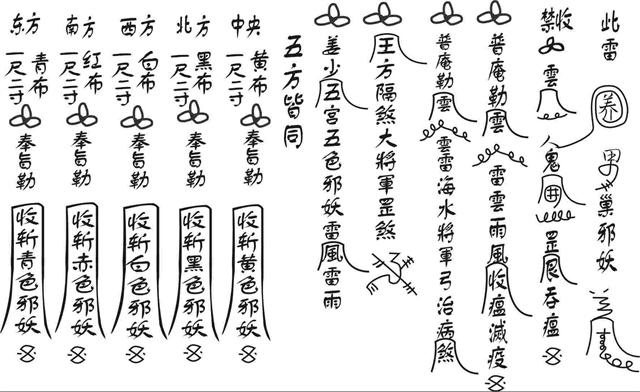 此雷养巢邪妖
禁收雲人鬼罡吞瘟
普庵勒雲雷雲雨風收瘟滅疫
普庵勒雲雲雷海水將軍弓治病煞
王方隔煞大將軍罡煞
姜少五宫五色邪妖雷風雷雨
五方皆同
中央
黄布
一尺二寸
奉旨勒
收斩黄色邪妖
北方
黑布
一尺二寸
奉旨勒
收斩黑色邪妖
西方
白布
一尺二寸
奉旨勒
收斩白色邪妖
南方
红布
一尺二寸
奉旨勒
收斩赤色邪妖
东方
青布
一尺二寸
奉旨勒
收斩青色邪妖